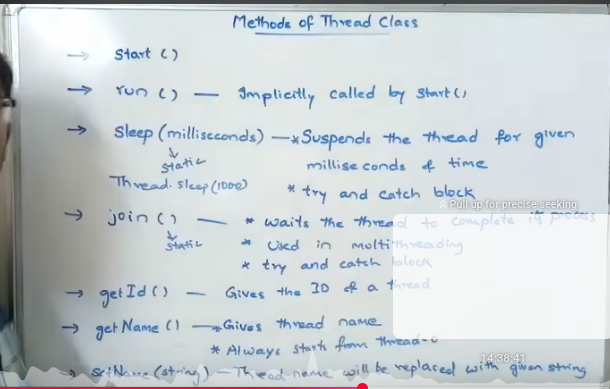 Methods of Thread Class
→ Start ()
→ run () — Implicitly called by Start()
→ Sleep (milliseconds) — * Suspends the thread for given
static
milliseconds of time
Thread.sleep(1000)
* try and catch block
Pull up for precise seeking
→ join () — * waits the thread to complete its process
static
* Used in multithreading
* try and catch block
→ getId () — Gives the ID of a thread
→ getName () — * Gives thread name
* Always starts from thread-0
14:38:41
→ setName (string) — Thread name will be replaced with given string